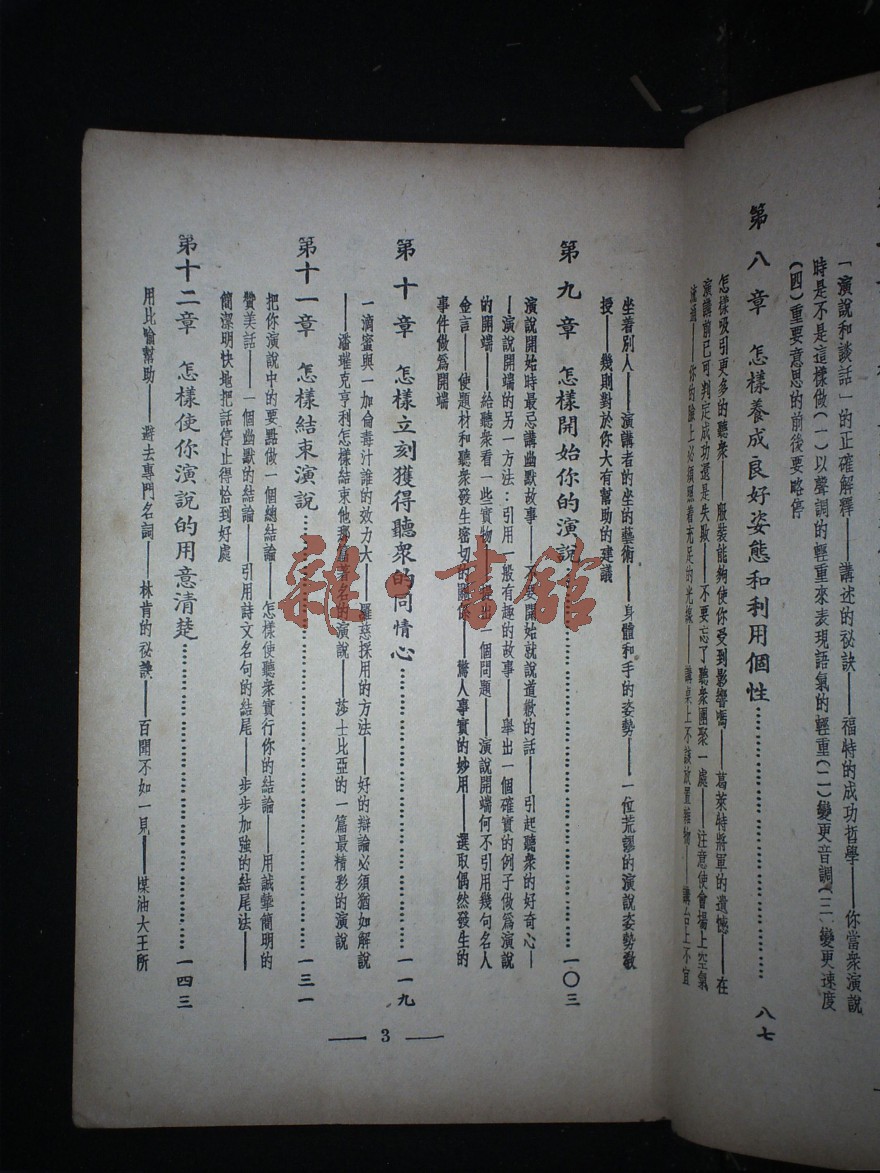 「演說和談話」的正確解釋——講述的祕訣——福特的成功哲學——你當衆演說
時是不是這樣做(一)以聲調的輕重來表現語氣的輕重(二)變更音調(三)變更速度
(四)重要意思的前後要略停
第八章 怎樣養成良好姿態和利用個性 八七
怎樣吸引更多的聽衆——服裝能夠使你受到影響嗎——葛萊特將軍的遺憾——在
演講前已可判定成功還是失敗——不要忘了聽衆團聚一處——注意使會場上空氣
流通——你的臉上必須照着充足的光線——講桌上不該放置雜物——講台上不宜
坐着別人——演講者的坐的藝術——身體和手的姿勢——一位荒謬的演說姿勢敎
授——幾則對於你大有幫助的建議
第九章 怎樣開始你的演說 一〇三
演說開始時最忌講幽默故事——不要開始就說道歉的話——引起聽衆的好奇心—
—演說開端的另一方法：引用一般有趣的故事——舉出一個確實的例子做爲演說
的開端——給聽衆看一些實物——提出一個問題——演說開端何不引用幾句名人
金言——使題材和聽衆發生密切的關係——驚人事實的妙用——選取偶然發生的
事件做爲開端
第十章 怎樣立刻獲得聽衆的同情心 一一九
一滴蜜與一加倫毒汁誰的效力大——羅慈採用的方法——好的辯論必須猶如解說
——潘璀克亨利怎樣結束他那篇著名的演說——莎士比亞的一篇最精彩的演說
第十一章 怎樣結束演說 一三一
把你演說中的要點做一個總結論——怎樣使聽衆實行你的結論——用誠摯簡明的
贊美話——一個幽默的結論——引用詩文名句的結尾——步步加強的結尾法——
簡潔明快地把話停止得恰到好處
第十二章 怎樣使你演說的用意清楚 一四三
用比喻幫助——避去專門名詞——林肯的祕訣——百聞不如一見——煤油大王所
— 3 —
雜·書館